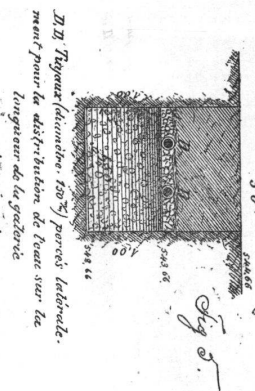 Fig 5.
544,66
D
D
543,66
1,00
1,00
542,66
D.D, Tuyaux (diamètre. 150 m/m) percés latérale-
ment pour la distribution de l'eau sur la
longueur de la galerie